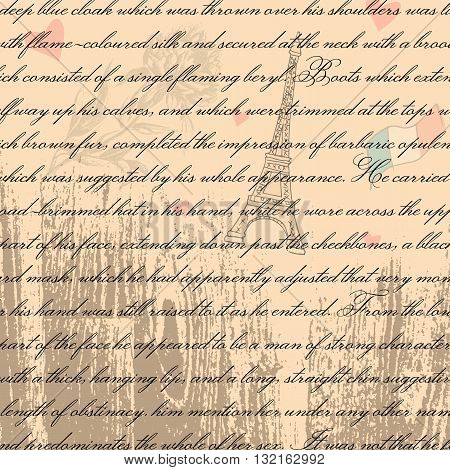 deep blue cloak which was thrown over his shoulders was li
with flame-coloured silk and secured at the neck with a brooc
ich consisted of a single flaming beryl. Boots which exten
lfway up his calves, and which were trimmed at the tops w
ich brown fur, completed the impression of barbaric opulen
which was suggested by his whole appearance. He carried
oad-brimmed hat in his hand, while he wore across the upp
part of his face, extending down past the cheekbones, a black
ard mask, which he had apparently adjusted that very mom
r his hand was still raised to it as he entered. From the low
part of the face he appeared to be a man of strong character
with a thick, hanging lip, and a long, straight chin suggestiv
length of obstinacy. him mention her under any other name
nd predominates the whole of her sex. It was not that he